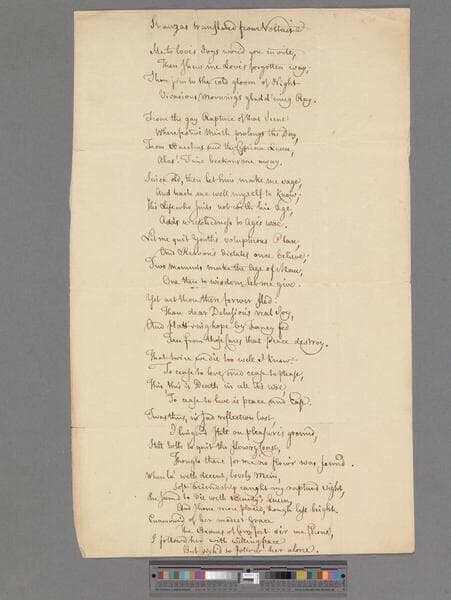 Stanzas translated from Voltaire
Me to loves days would you invite,
Then shew me Love's forgotten way,
Then join to the cold gloom of Night
Vivacious Morning's gladd'ning Ray.
From the gay Rapture of that Scene
Where festive Mirth prolongs the Day,
From Bacchus and the Cyprian Queen,
Alas! Time beckons me away.
Since old, then let him make me sage,
And teach me well myself to know,
His Life who suits not with his Age,
Adds wretchedness to Age's woe.
Let me quit Youth's voluptuous Plan,
And Reason's dictates once believe;
Two moments make the Age of Man,
One then to wisdom let me give.
Yet art thou then forever fled:
Thou dear Delusion's real Joy,
And flatt'ring hope by Fancy fed
Free from those Cares that Peace destroy.
That twice we die too well I know:
To cease to love, and cease to please,
This this is Death in all its woe
To cease to live is peace and Ease.
Twas thus, in sad reflection lost
I linger'd still on pleasure's ground,
Still loth to quit the flowery
Though there for me no flow'r was found.
When lo! with decent, lovely Mein,
Soft Friendship caught my raptur'd sight,
She seem'd to vie with Beauty's Queen,
And shone more placid, though less bright.
Enamour'd of her modest Grace
The Beams of Comfort o'er me shone,
I follow'd her with willing pace
But wish'd to follow her alone.